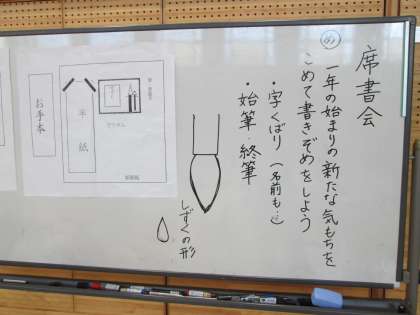 席書会
め
一年の始まりの新たな気もちを
こめて書きぞめをしよう
・字くばり（名前も…）
・始筆・終筆
しずくの形
半紙
お手本